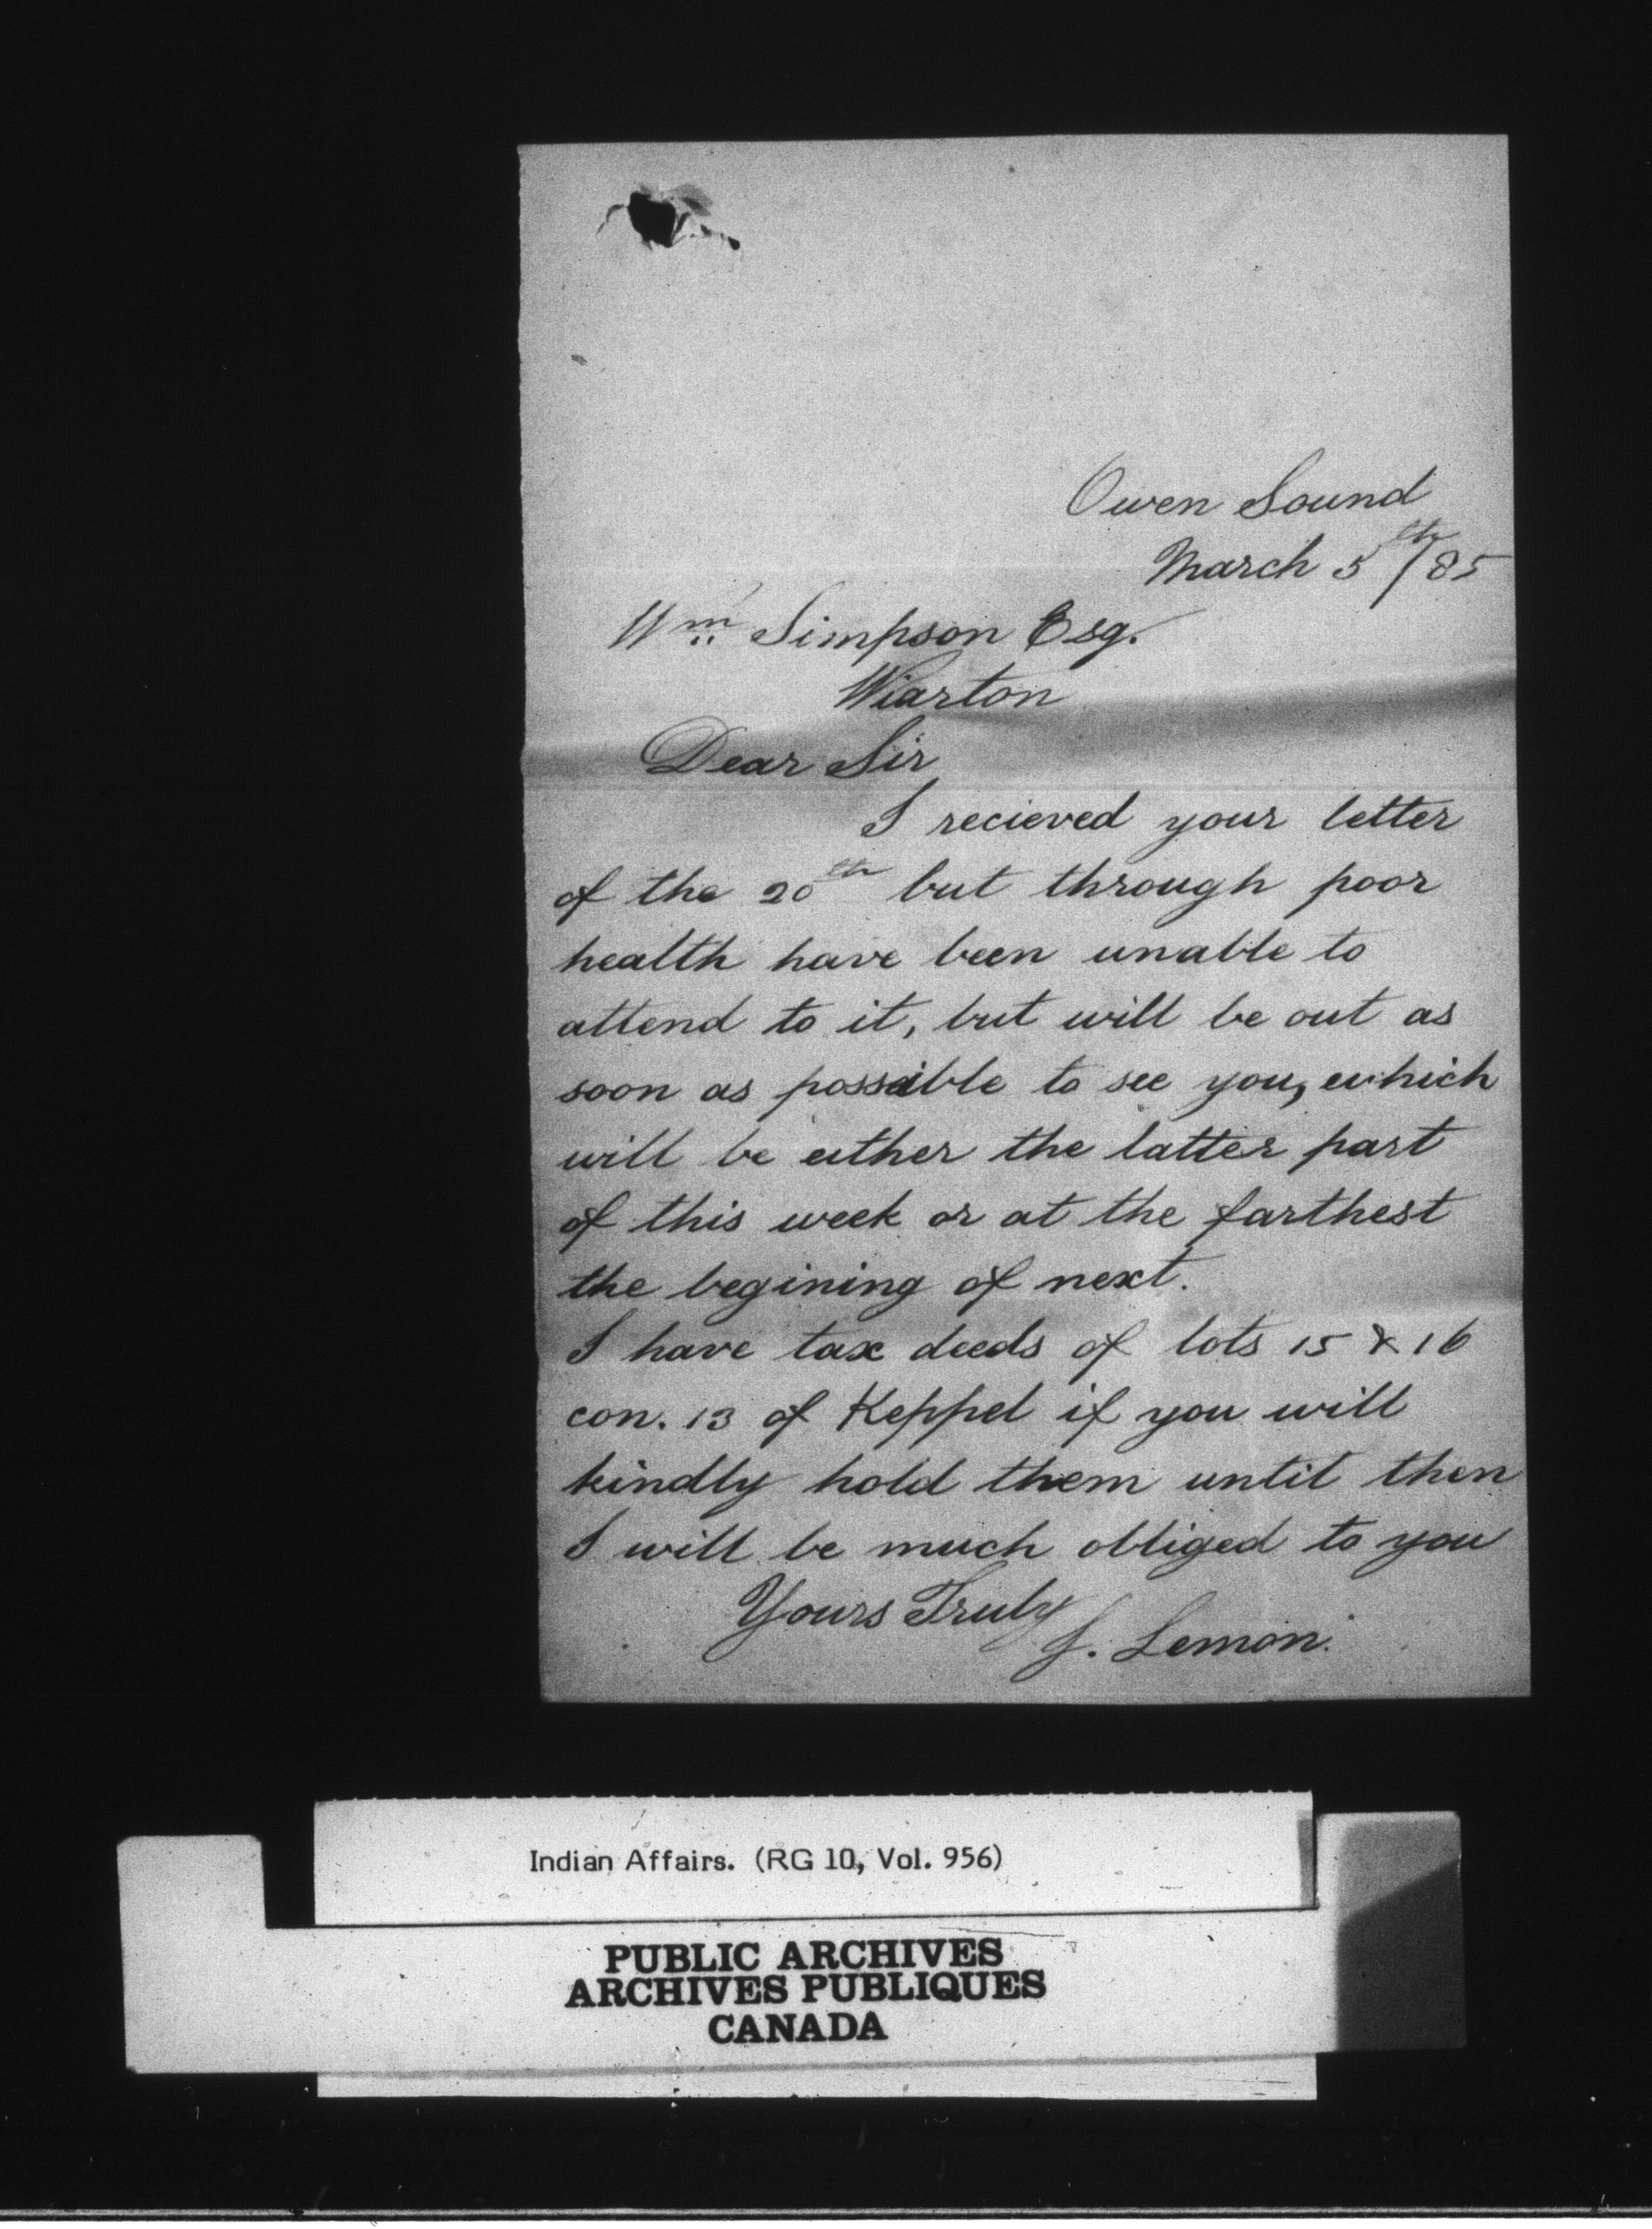 Owen Sound
March 5th/85
Wm Simpson Esq.
Wiarton
Dear Sir
I recieved your letter
of the 20th but through poor
health have been unable to
attend to it, but will be out as
soon as possible to see you, which
will be either the latter part
of this week or at the farthest
the begining of next.
I have tax deeds of lots 15 & 16
con. 13 of Keppel if you will
kindly hold them until then
I will be much obliged to you
Yours Truly
J. Lemon.
Indian Affairs. (RG 10, Vol. 956)
PUBLIC ARCHIVES
ARCHIVES PUBLIQUES
CANADA